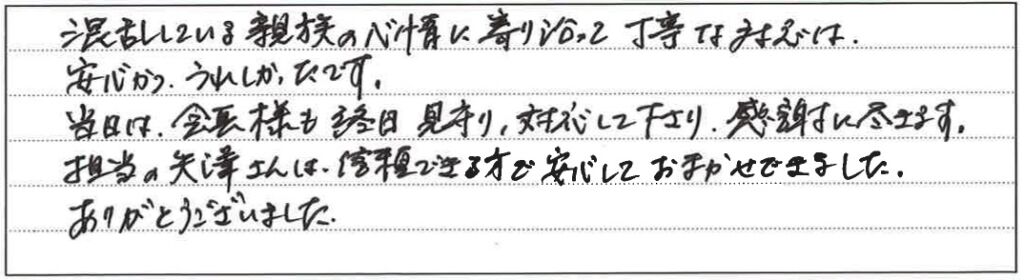 混乱している親族の心情に寄り沿って丁寧な対応は、
安心かつ、うれしかったです。
当日は、会長様も終日見守り、対応して下さり、感謝に尽きます。
担当の矢澤さんは、信頼できる方で安心しておまかせできました。
ありがとうございました。